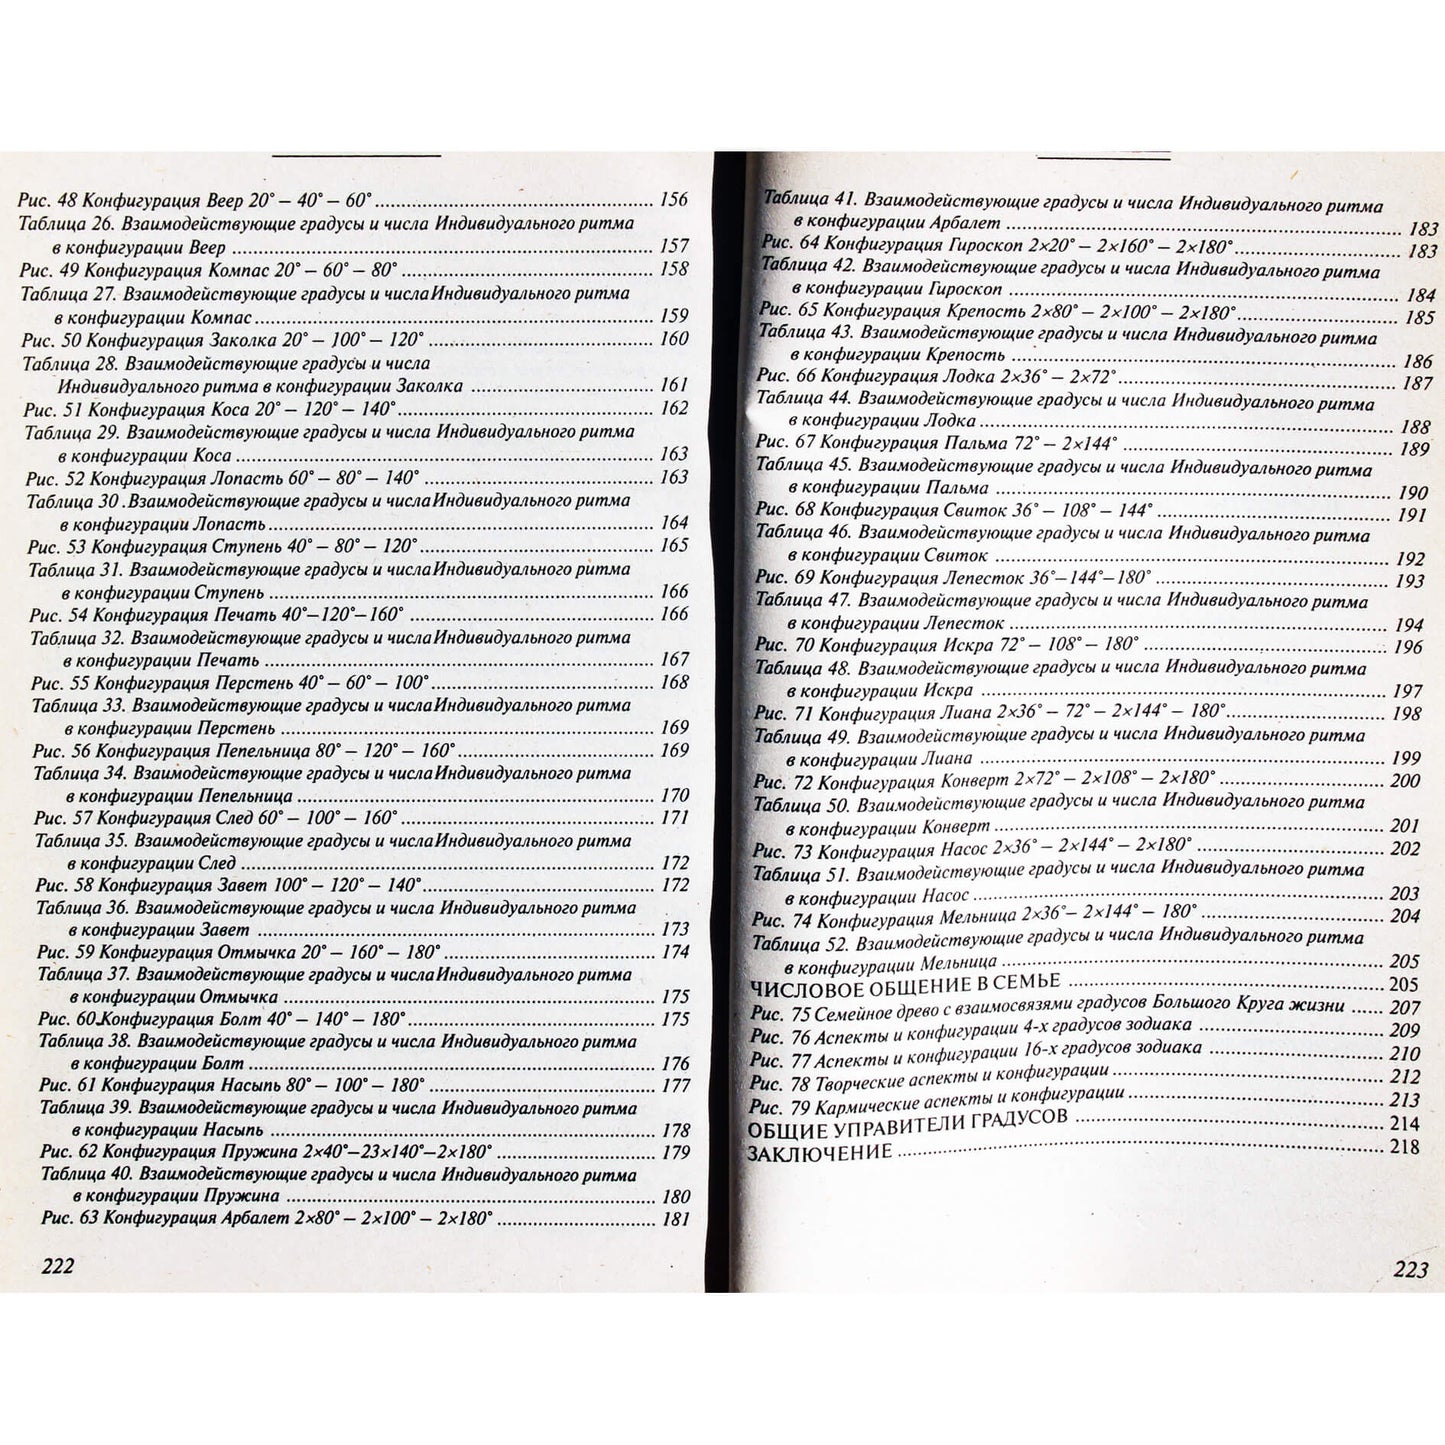 Рис. 48 Конфигурация Веер 20° – 40° – 60° ........ 156
Таблица 26. Взаимодействующие градусы и числа Индивидуального ритма
в конфигурации Веер ........ 157
Рис. 49 Конфигурация Компас 20° – 60° – 80° ........ 158
Таблица 27. Взаимодействующие градусы и числа Индивидуального ритма
в конфигурации Компас ........ 159
Рис. 50 Конфигурация Заколка 20° – 100° – 120° ........ 160
Таблица 28. Взаимодействующие градусы и числа
Индивидуального ритма в конфигурации Заколка ........ 161
Рис. 51 Конфигурация Коса 20° – 120° – 140° ........ 162
Таблица 29. Взаимодействующие градусы и числа Индивидуального ритма
в конфигурации Коса ........ 163
Рис. 52 Конфигурация Лопасть 60° – 80° – 140° ........ 163
Таблица 30 .Взаимодействующие градусы и числа Индивидуального ритма
в конфигурации Лопасть ........ 164
Рис. 53 Конфигурация Ступень 40° – 80° – 120° ........ 165
Таблица 31. Взаимодействующие градусы и числа Индивидуального ритма
в конфигурации Ступень ........ 166
Рис. 54 Конфигурация Печать 40°–120°–160° ........ 166
Таблица 32. Взаимодействующие градусы и числа Индивидуального ритма
в конфигурации Печать ........ 167
Рис. 55 Конфигурация Перстень 40° – 60° – 100° ........ 168
Таблица 33. Взаимодействующие градусы и числа Индивидуального ритма
в конфигурации Перстень ........ 169
Рис. 56 Конфигурация Пепельница 80° – 120° – 160° ........ 169
Таблица 34. Взаимодействующие градусы и числа Индивидуального ритма
в конфигурации Пепельница ........ 170
Рис. 57 Конфигурация След 60° – 100° – 160° ........ 171
Таблица 35. Взаимодействующие градусы и числа Индивидуального ритма
в конфигурации След ........ 172
Рис. 58 Конфигурация Завет 100° – 120° – 140° ........ 172
Таблица 36. Взаимодействующие градусы и числа Индивидуального ритма
в конфигурации Завет ........ 173
Рис. 59 Конфигурация Отмычка 20° – 160° – 180° ........ 174
Таблица 37. Взаимодействующие градусы и числа Индивидуального ритма
в конфигурации Отмычка ........ 175
Рис. 60.Конфигурация Болт 40° – 140° – 180° ........ 175
Таблица 38. Взаимодействующие градусы и числа Индивидуального ритма
в конфигурации Болт ........ 176
Рис. 61 Конфигурация Насыпь 80° – 100° – 180° ........ 177
Таблица 39. Взаимодействующие градусы и числа Индивидуального ритма
в конфигурации Насыпь ........ 178
Рис. 62 Конфигурация Пружина 2×40°–23×140°–2×180° ........ 179
Таблица 40. Взаимодействующие градусы и числа Индивидуального ритма
в конфигурации Пружина ........ 180
Рис. 63 Конфигурация Арбалет 2×80° – 2×100° – 2×180° ........ 181
222
Таблица 41. Взаимодействующие градусы и числа Индивидуального ритма
в конфигурации Арбалет ........ 183
Рис. 64 Конфигурация Гироскоп 2×20° – 2×160° – 2×180° ........ 183
Таблица 42. Взаимодействующие градусы и числа Индивидуального ритма
в конфигурации Гироскоп ........ 184
Рис. 65 Конфигурация Крепость 2×80° – 2×100° – 2×180° ........ 185
Таблица 43. Взаимодействующие градусы и числа Индивидуального ритма
в конфигурации Крепость ........ 186
Рис. 66 Конфигурация Лодка 2×36° – 2×72° ........ 187
Таблица 44. Взаимодействующие градусы и числа Индивидуального ритма
в конфигурации Лодка ........ 188
Рис. 67 Конфигурация Пальма 72° – 2×144° ........ 189
Таблица 45. Взаимодействующие градусы и числа Индивидуального ритма
в конфигурации Пальма ........ 190
Рис. 68 Конфигурация Свиток 36° – 108° – 144° ........ 191
Таблица 46. Взаимодействующие градусы и числа Индивидуального ритма
в конфигурации Свиток ........ 192
Рис. 69 Конфигурация Лепесток 36°–144°–180° ........ 193
Таблица 47. Взаимодействующие градусы и числа Индивидуального ритма
в конфигурации Лепесток ........ 194
Рис. 70 Конфигурация Искра 72° – 108° – 180° ........ 196
Таблица 48. Взаимодействующие градусы и числа Индивидуального ритма
в конфигурации Искра ........ 197
Рис. 71 Конфигурация Лиана 2×36° – 72° – 2×144° – 180° ........ 198
Таблица 49. Взаимодействующие градусы и числа Индивидуального ритма
в конфигурации Лиана ........ 199
Рис. 72 Конфигурация Конверт 2×72° – 2×108° – 2×180° ........ 200
Таблица 50. Взаимодействующие градусы и числа Индивидуального ритма
в конфигурации Конверт ........ 201
Рис. 73 Конфигурация Насос 2×36° – 2×144° – 2×180° ........ 202
Таблица 51. Взаимодействующие градусы и числа Индивидуального ритма
в конфигурации Насос ........ 203
Рис. 74 Конфигурация Мельница 2×36°– 2×144° – 180° ........ 204
Таблица 52. Взаимодействующие градусы и числа Индивидуального ритма
в конфигурации Мельница ........ 205
ЧИСЛОВОЕ ОБЩЕНИЕ В СЕМЬЕ ........ 205
Рис. 75 Семейное древо с взаимосвязями градусов Большого Круга жизни ...... 207
Рис. 76 Аспекты и конфигурации 4-х градусов зодиака ........ 209
Рис. 77 Аспекты и конфигурации 16-х градусов зодиака ........ 210
Рис. 78 Творческие аспекты и конфигурации ........ 212
Рис. 79 Кармические аспекты и конфигурации ........ 213
ОБЩИЕ УПРАВИТЕЛИ ГРАДУСОВ ........ 214
ЗАКЛЮЧЕНИЕ ........ 218
223